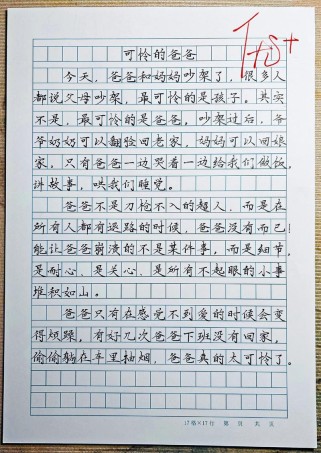 可怜的爸爸
今天，爸爸和妈妈吵架了，很多人
都说父母吵架，最可怜的是孩子。其实
不是，最可怜的是爸爸。吵架过后，爷
爷奶奶可以翻脸回老家，妈妈可以回娘
家，只有爸爸一边哭着一边给我们做饭，
讲故事，哄我们睡觉。
爸爸不是刀枪不入的超人，而是在
所有人都有退路的时候，爸爸没有而已！
能让爸爸崩溃的不是某件事，而是细节，
是耐心，是关心，是所有不起眼的小事
堆积如山。
爸爸只有在感觉不到爱的时候会变
得烦躁，有好几次爸爸下班没有回家，
偷偷躺在车里抽烟，爸爸真的太可怜了。
17格×17行 第 页 共 页